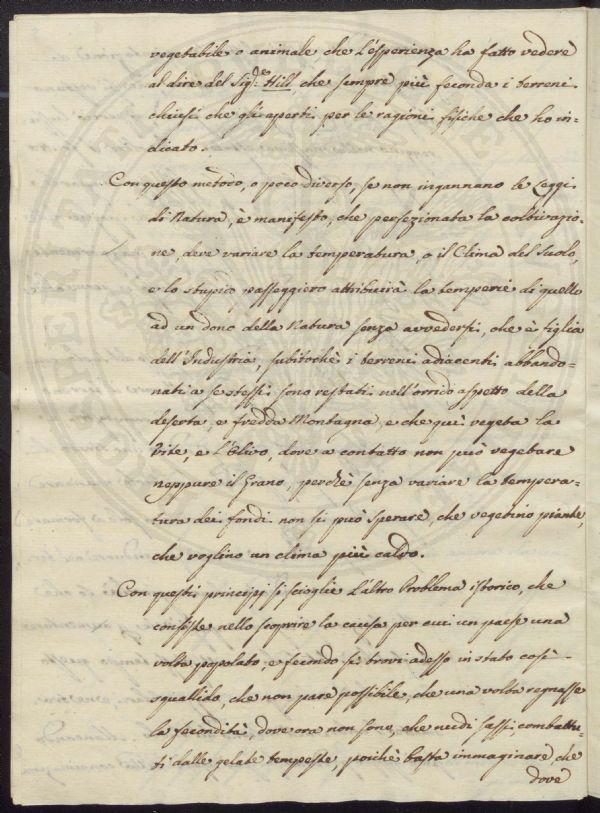 vegetabile o animale che l'esperienza ha fatto vedere
al dire del Sig.r Hill che sempre più feconda i terreni
chiusi che gli aperti per le ragioni fisiche che ho in=
dicato.
Con questo metodo, o poco diverso, se non ingannano le Leggi
di Natura, è manifesto, che perfezionata la coltivazio=
ne, deve variare la temperatura, o il Clima del Suolo,
e lo stupido passeggiero attribuirà la temperie di quello
ad un dono della Natura senza avvedersi, che è figlia
dell'Industria, subitochè i terreni adiacenti abbando=
nati a se stessi sono restati nell'orrido aspetto della
deserta, e fredda Montagna, e che quì vegeta la
Vite, e l'Olivo, dove a contatto non può vegetare
neppure il Grano, perchè senza variare la tempera=
tura dei fondi non si può sperare, che vegetino piante,
che voglino un clima più caldo.
Con questi principj si scioglie l'altro Problema istorico, che
consiste nello scoprire la causa per cui un paese una
volta popolato, e fecondo si trovi adesso in stato così
squallido, che non pare possibile, che una volta regnasse
la fecondità, dove ora non sono, che nudi sassi combattu=
ti dalle gelate tempeste, poichè basta immaginare, che
dove